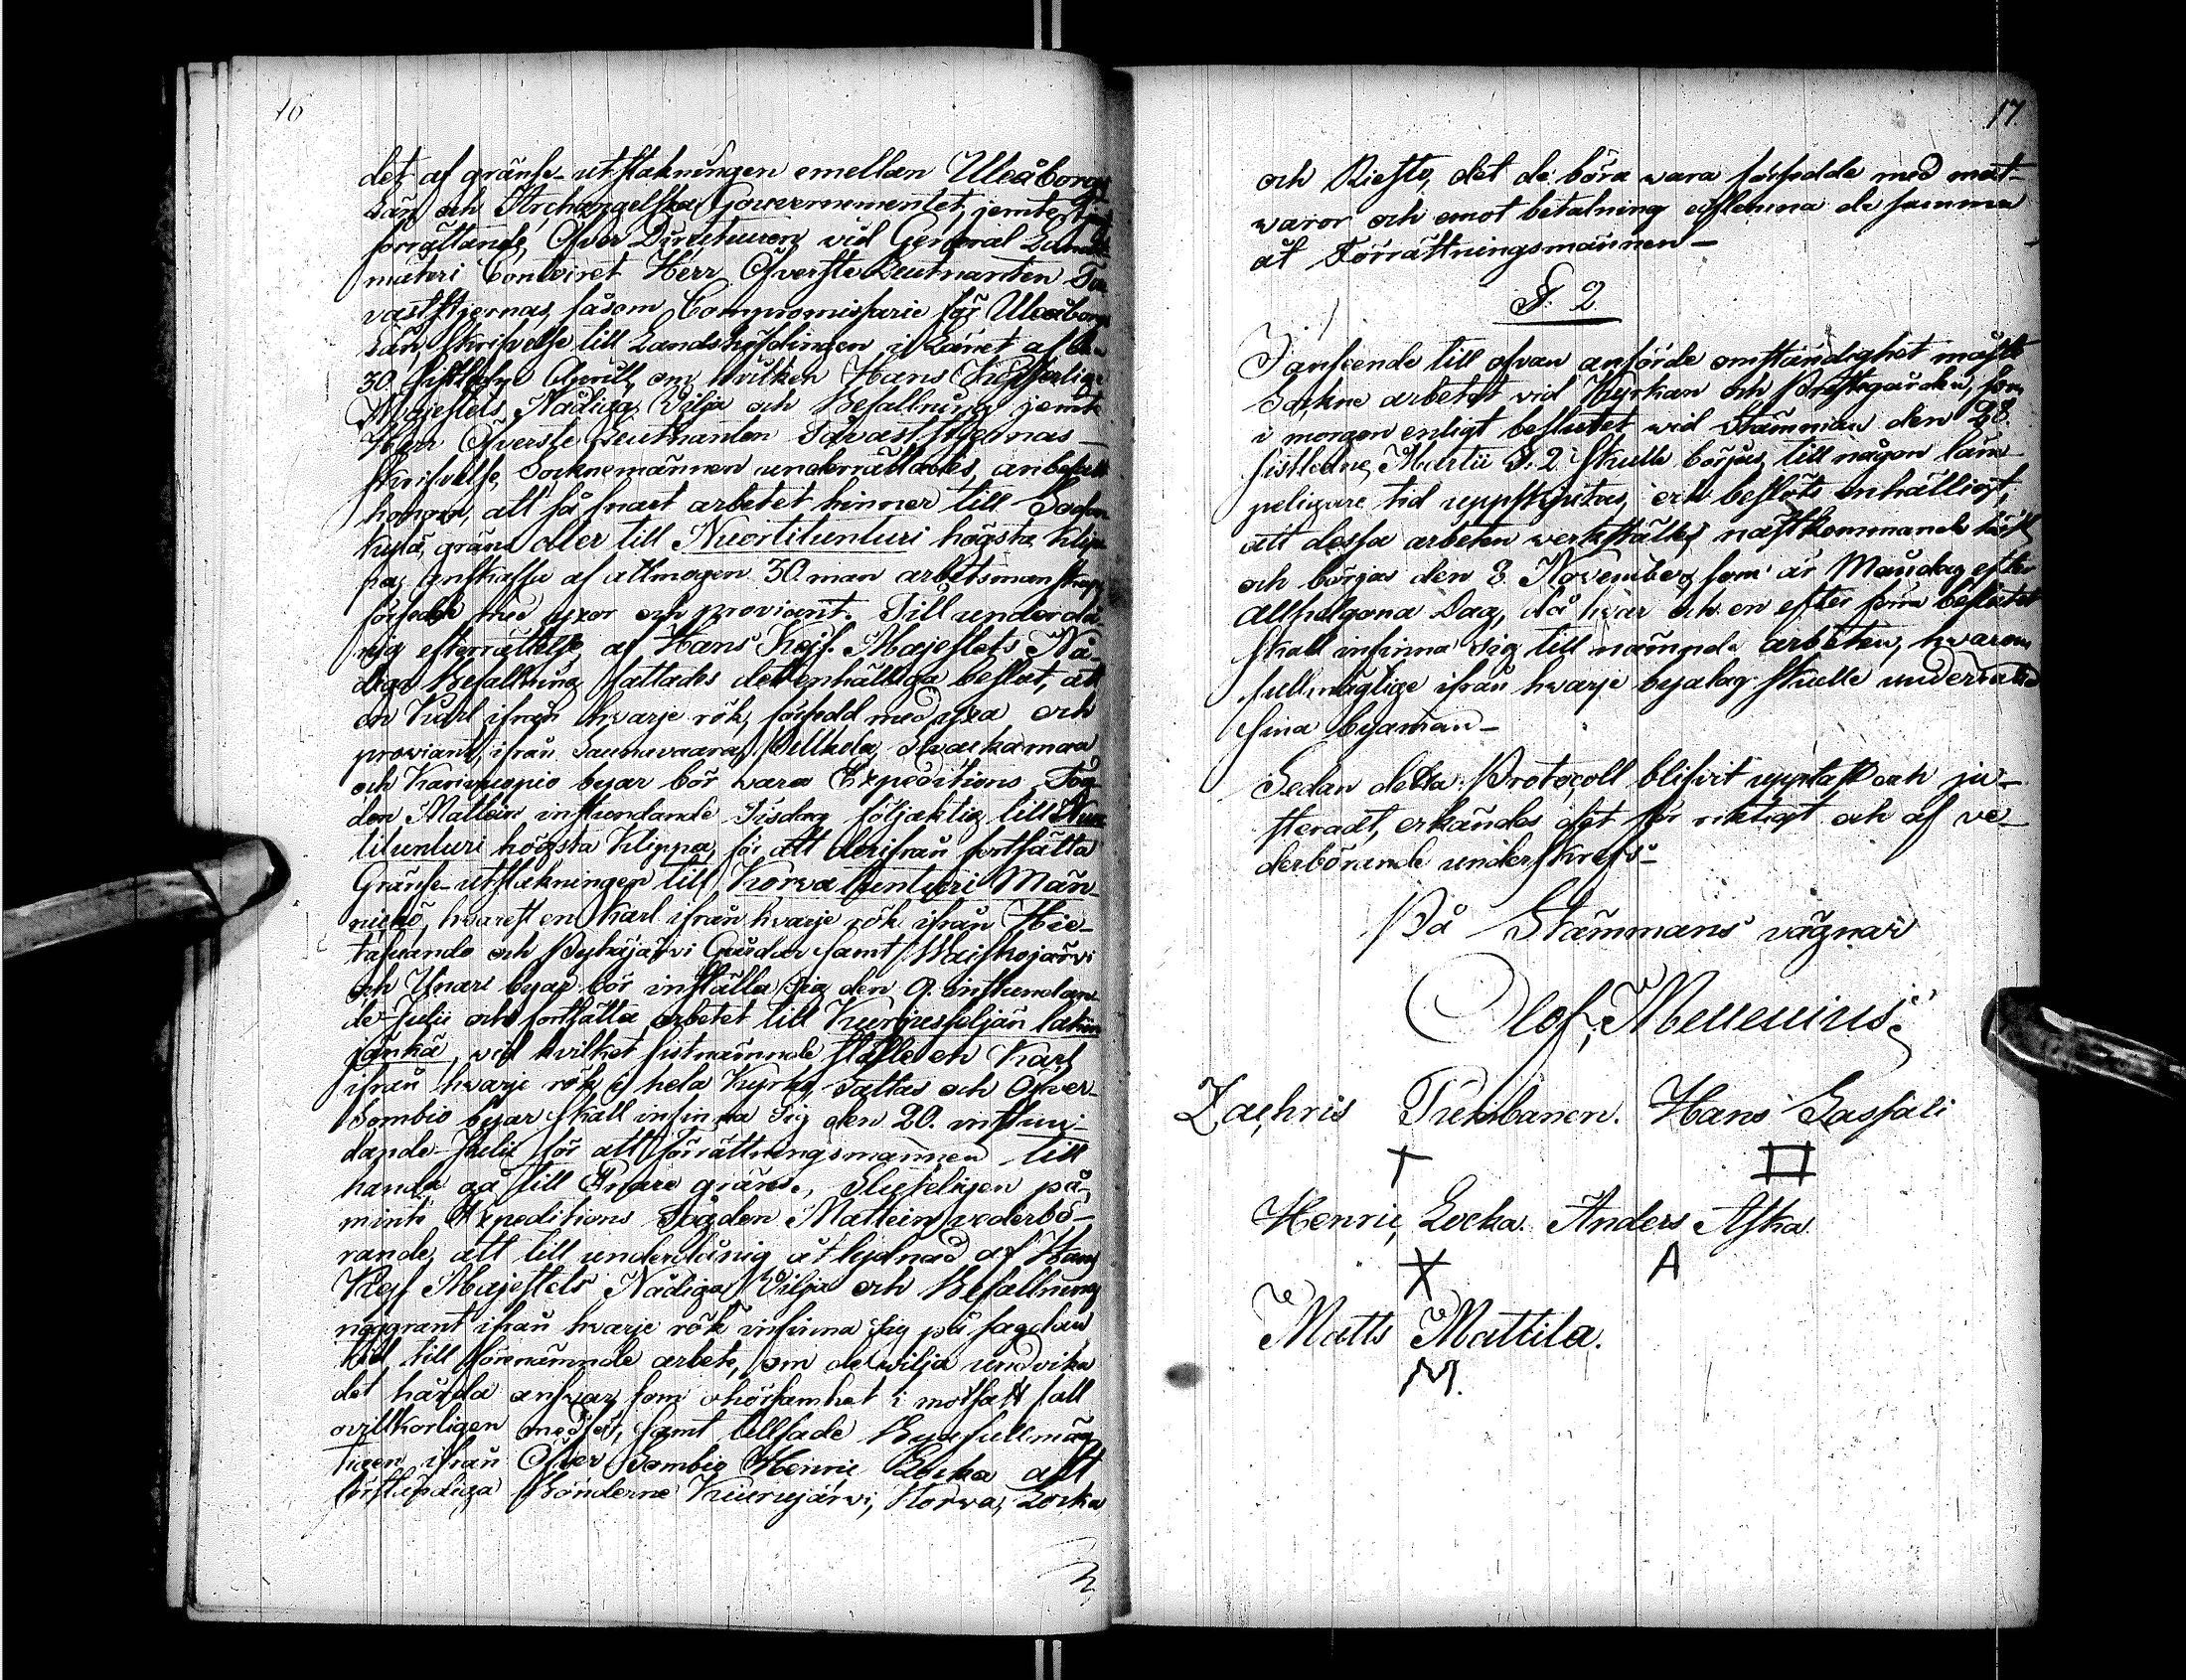 16
det af gränse-utstakningen emellan Uleåborgs
Län och Archangelska Gouvernementet, jemte
förrättande, Öfver Directeuren vid General Landt-
mäteri Contoiret Herr Öfverste Leutnanten Ta-
vaststjernas, såsom Compromissarie för Uleåborgs
Län, skrifvelse till Landshöfdingen i Länet af den
30 sistledne Aprill, om hvilken Hans Kejserliga
Majestets Nådiga Vilja och Befallning jemte
Herr Öfverste Leutnanten Tavaststjernas
skrifvelse, Socknemännen underrättades, anbefallt
honom, att så snart arbetet hinner till Sodan-
kylä gräns eller till Nuortitunturi högsta Klip-
pa, anskaffa af allmogen 30 man arbetsmanskap
försedde med yxor och proviant. Till underdå-
nig efterrättelse af Hans Kejs. Majestets Nå-
diga Befallning fattades det enhälliga beslut, att
en Karl ifrån hvarje rök, försedd med yxa och
proviant, ifrån Saunavaara, Pelkola, Suvackamaa
och Kariepiopio byar bör vara Expeditions Fog-
den Mattein instundande Tisdag följaktig till Nuor-
titunturi högsta Klippa, för att derifrån fortsätta
Gränse-utstakningen till Korvatunturi Män-
nickö, hvarest en Karl ifrån hvarje rök ifrån Hie-
tasuando och Pyhäjärvi Gårdar samt Waiskojärvi
och Unari byar bör inställa sig den 9. instundan-
de Julii och fortsätta arbetet till Kurjuspoljan latium
jänkä, vid hvilket sistnämnde ställe en Karl
ifrån hvarje rök i hela Kyrko, Sattas och Öfver-
Sombio byar skall infinna sig den 20. instun-
dande Julii för att förrättningsmannen till
handa gå till Enare gräns. Sluteligen på-
minte Expeditions Fogden Mattein vederbö-
rande, att till underdånig åtlydnad af Hans
Kejs. Majestets Nådiga Vilja och Befallning
noggrant ifrån hvarje rök infinna sig på sagdan
tid till förenämnde arbete, om de vilja undvika
det hårda answar, som ohörsamhet i motsatt fall
ovillkorligen medför, samt tillsade Byafullmäg-
tigen ifrån Öfver Sombio Henric Locka att
förständiga Bönderne Kuurujärvi, Korva, Locka
17.
och Riesto, det de böra wara försedde med mat-
waror och emot betalning aflemna de samma
åt Förrättningsmännen-
§. 2
I anseende till ofvan anförde omständighet måste
Sockne arbetet vid Kyrkan och Prestegården, som
i morgon enligt beslutet wid Stämman den 28.
sistledne Martii §. 2 skulle börjas, till någon läm-
peligare tid uppskjutas, och beslöts enhälligt,
att dessa arbeten werkställes nästkommande höst
och börjas den 8 November, som är Måndag efter
Allhelgona Dag, då hvar och en efter förra beslutet
skall infinna sig till nämnde arbeten, hvarom
fullmägtige ifrån hvarje byalag skulle underrätta
sina byamän-
Sedan detta Protocoll blifvit uppläst och ju-
steradt, erkändes det för riktigt och af ve-
derbörande underskrefs-
På Stämmans vägnar
Olof Mellenius
Zachris Pukbanen. Hans Sassali
Henric Locka. Anders Aska.
X A
Matts Mattila.
M.